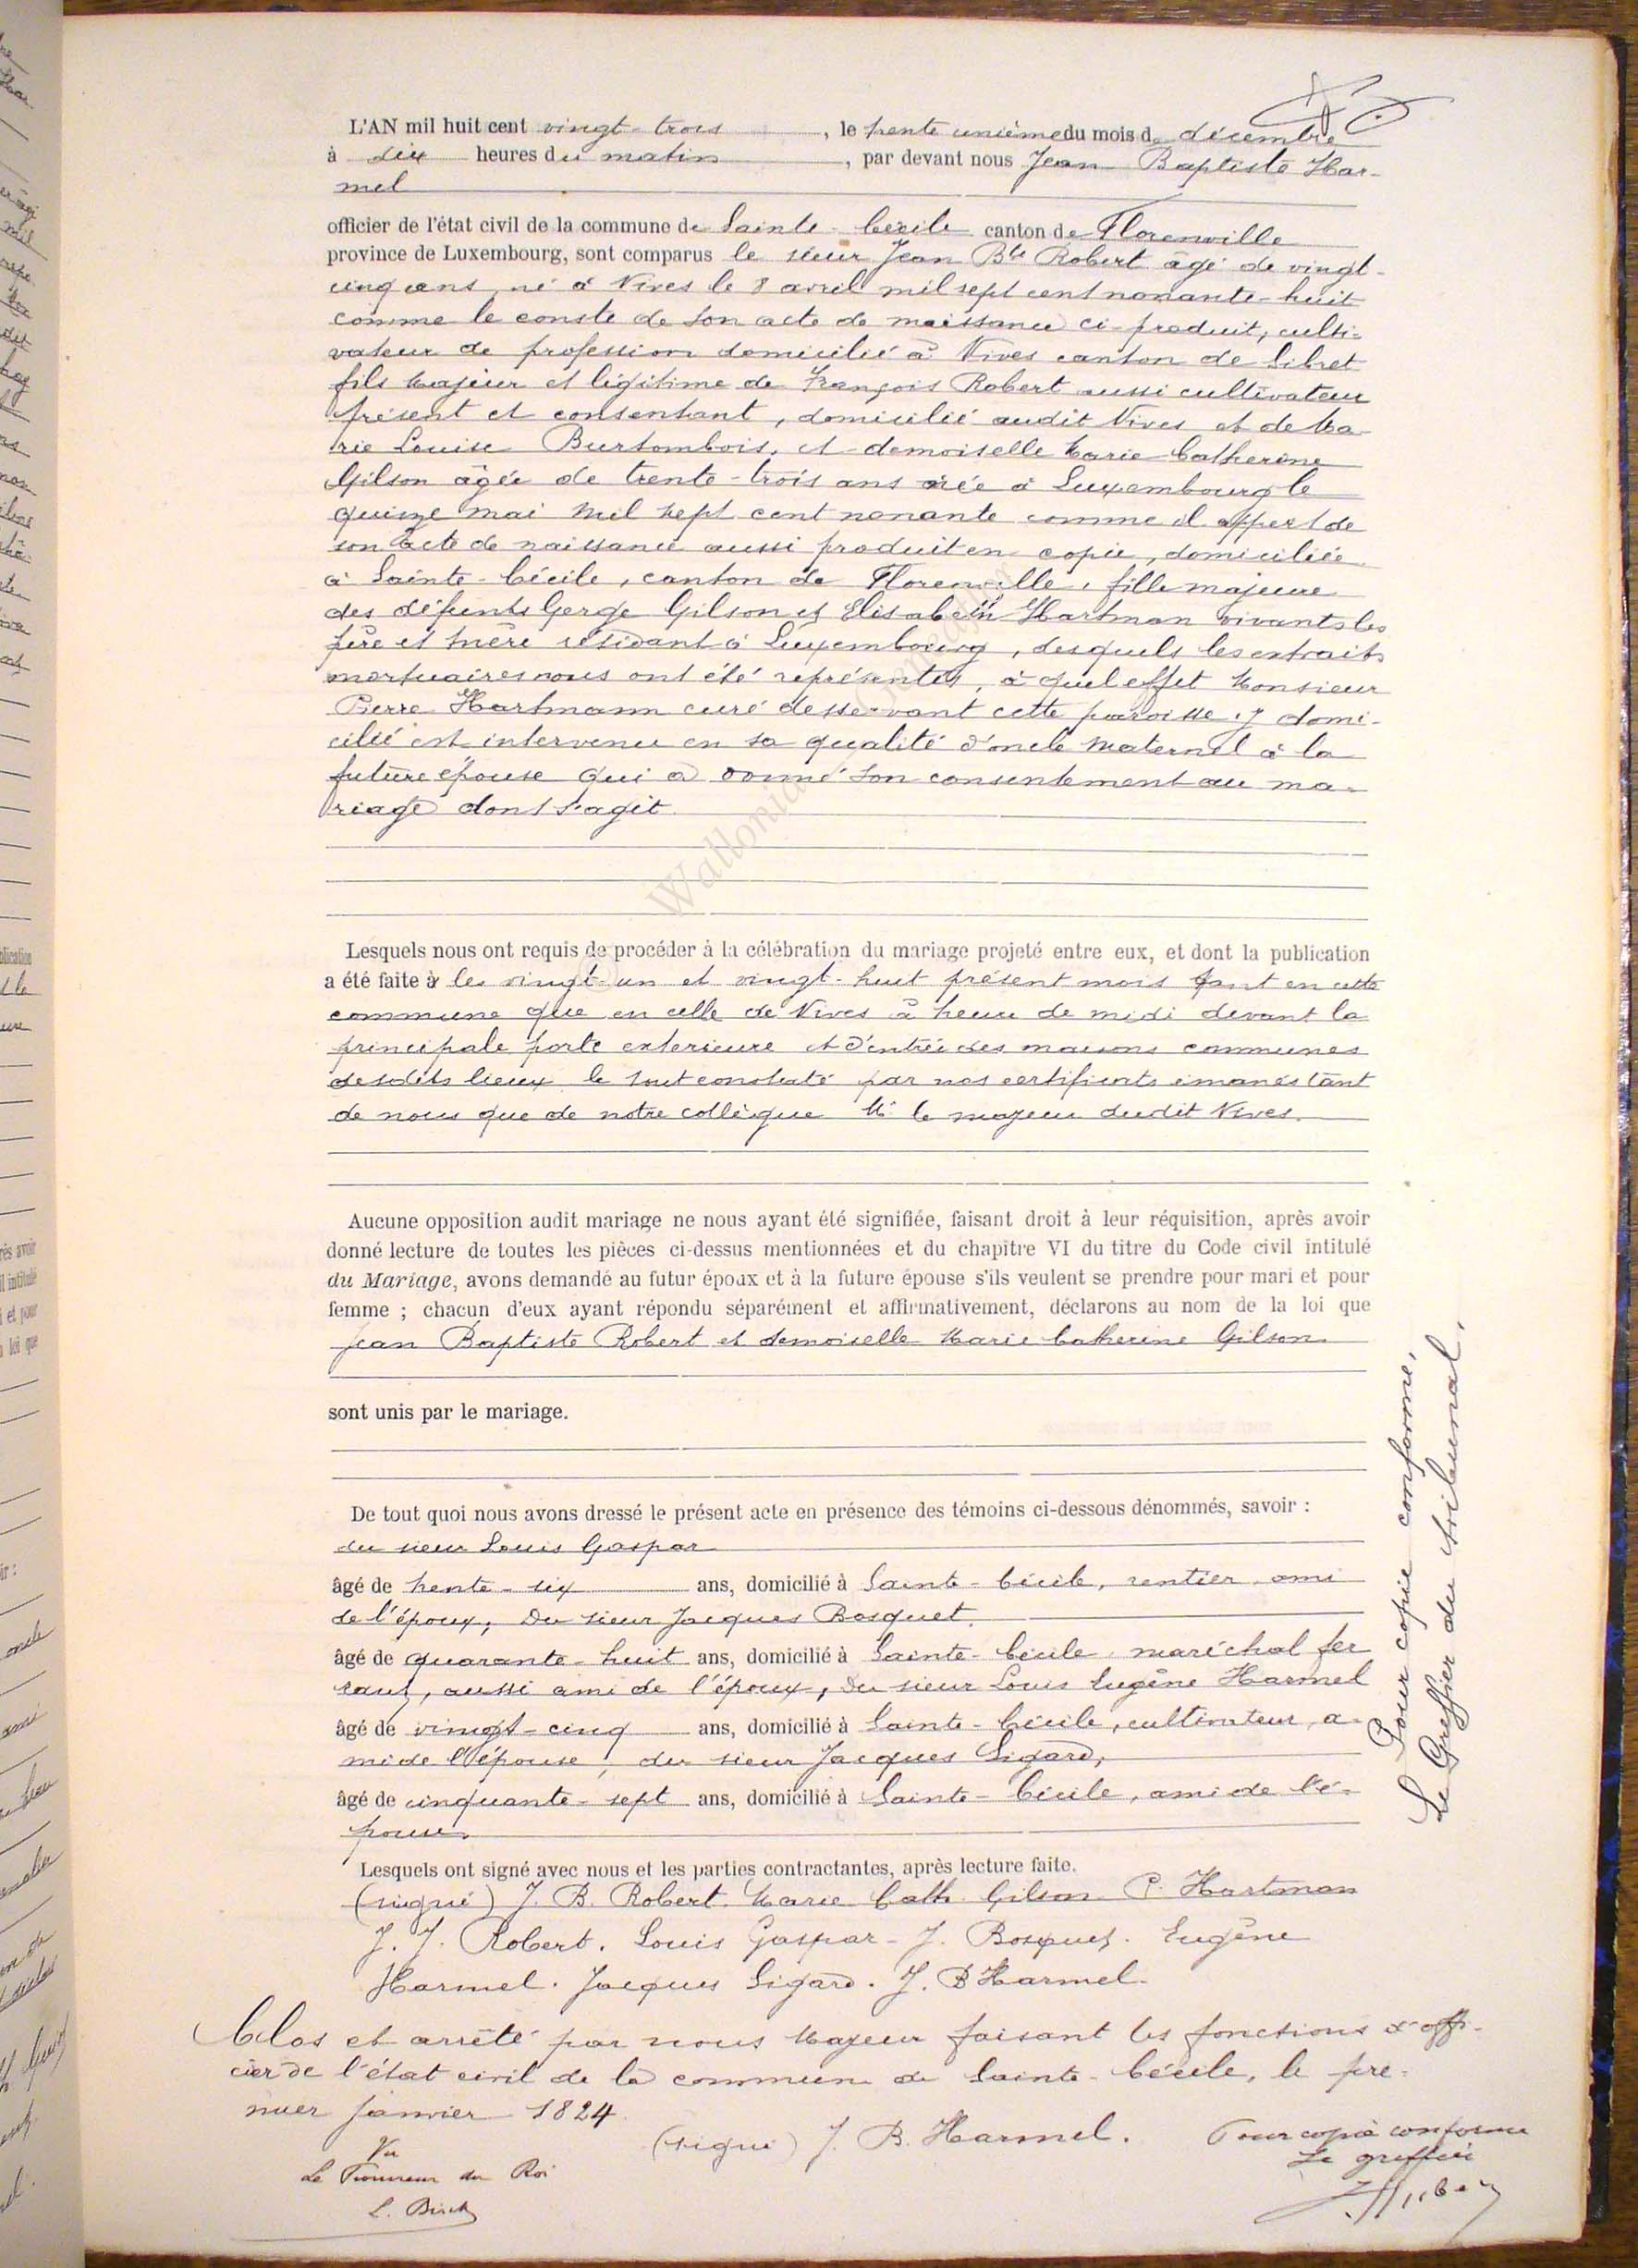 L'AN mil huit cent vingt-trois, le trente unième du mois de décembre
à dix heures du matin, par devant nous Jean Baptiste Har-
mel
officier de l'état civil de la commune de Sainte-Cécile canton de Florenville
province de Luxembourg, sont comparus le sieur Jean Bte Robert âgé de vingt-
cinq ans, né à Nives le 8 avril mil sept cent nonante-huit
comme le conste de son acte de naissance ci-produit, culti-
vateur de profession domicilié à Nives canton de Sibret
fils majeur et légitime de François Robert aussi cultivateur
présent et consentant, domicilié audit Nives et de Ma-
rie Louise Burtombois, et demoiselle Marie Catherine
Gilson âgée de trente-trois ans née à Luxembourg le
quinze mai mil sept cent nonante comme il appert de
son acte de naissance aussi produit en copie, domiciliée
à Sainte-Cécile, canton de Florenville, fille majeure
des défunts Gerge Gilson et Elisabeth Hartman vivants les
père et mère résidant à Luxembourg, desquels les extraits
mortuaires nous ont été représentés, à quel effet Monsieur
Pierre Hartmann curé desservant cette paroisse y domi-
cilié est intervenu en sa qualité d'oncle maternel à la
future épouse qui a donné son consentement au ma-
riage dont s'agit.
© Wallonia
Lesquels nous ont requis de procéder à la célébration du mariage projeté entre eux, et dont la publication
a été faite à les vingt-un et vingt-huit présent mois tant en cette
commune que en celle de Nives à heure de midi devant la
principale porte exterieure et d'entrée des maisons communes
desdits lieux le tout constaté par nos certificats émanés tant
de nous que de notre collègue Mr le mayeur dudit Nives.
Aucune opposition audit mariage ne nous ayant été signifiée, faisant droit à leur réquisition, après avoir
donné lecture de toutes les pièces ci-dessus mentionnées et du chapitre VI du titre du Code civil intitulé
du Mariage, avons demandé au futur époux et à la future épouse s'ils veulent se prendre pour mari et pour
femme ; chacun d'eux ayant répondu séparément et affirmativement, déclarons au nom de la loi que
Jean Baptiste Robert et demoiselle Marie Catherine Gilson
sont unis par le mariage.
De tout quoi nous avons dressé le présent acte en présence des témoins ci-dessous dénommés, savoir :
du sieur Louis Gaspar
âgé de trente-six ans, domicilié à Sainte-Cécile, rentier ami
de l'époux, du sieur Jacques Bosquet
âgé de quarante-huit ans, domicilié à Sainte-Cécile, maréchal fer
rant, aussi ami de l'époux, du sieur Louis Eugène Harmel
âgé de vingt-cinq ans, domicilié à Sainte-Cécile, cultivateur, a-
mi de l'épouse, du sieur Jacques Sigard,
âgé de cinquante-sept ans, domicilié à Sainte-Cécile, ami de l'é-
pouse.
Lesquels ont signé avec nous et les parties contractantes, après lecture faite.
(signé) J. B. Robert. Marie Cath. Gilson. P. Hartman
J. J. Robert. Louis Gaspar - J. Bosquet. Eugène
Harmel. Jacques Sigard. J. B Harmel.
Clos et arrêté par nous Mayeur faisant les fonctions d'offi-
cier de l'état civil de la commune de Sainte-Cécile, le pre-
mier janvier 1824.
(signé) J. B. Harmel.
Pour copie conforme
Le greffier
Vu
Le Procureur du Roi
Pour copie conforme,
Le Greffier du tribunal,